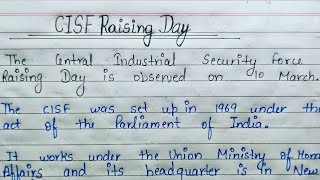 CISF Raising Day
The Central Industrial Security Force
Raising Day is observed on 10 March.
The CISF was set up in 1969 under the
act of the Parliament of India.
It works under the Union Ministry of Hom
Affairs and its headquarter is in New